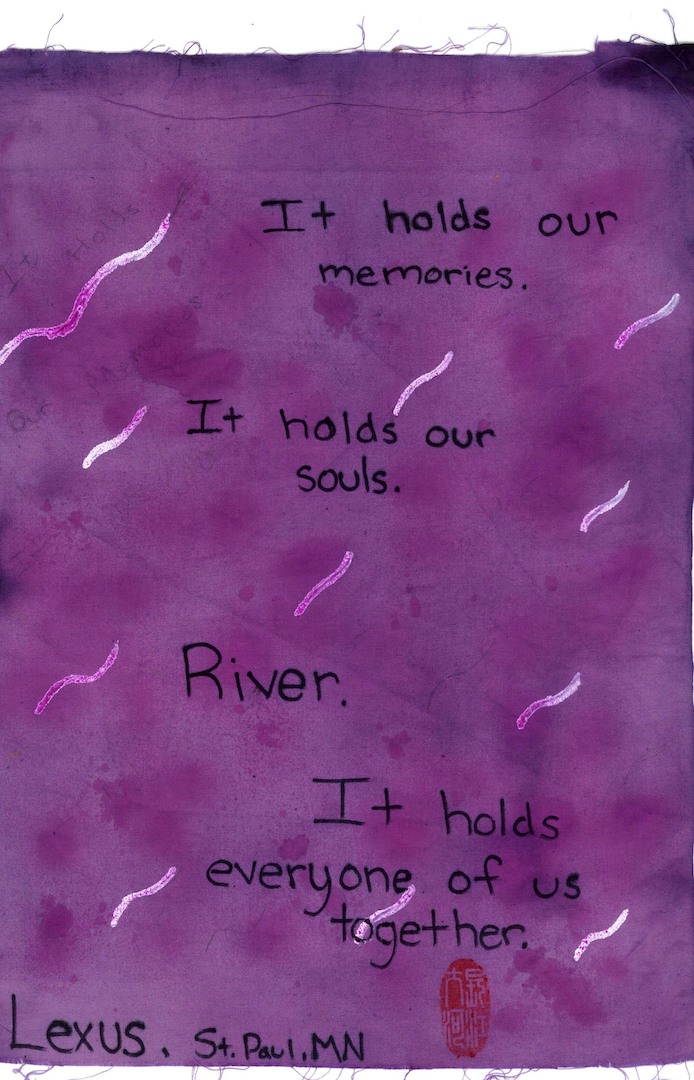 It Holds
It holds our
memories.
Our
It holds our
souls.
River.
It holds
everyone of us
together.
長江
大河
Lexus. St. Paul, MN